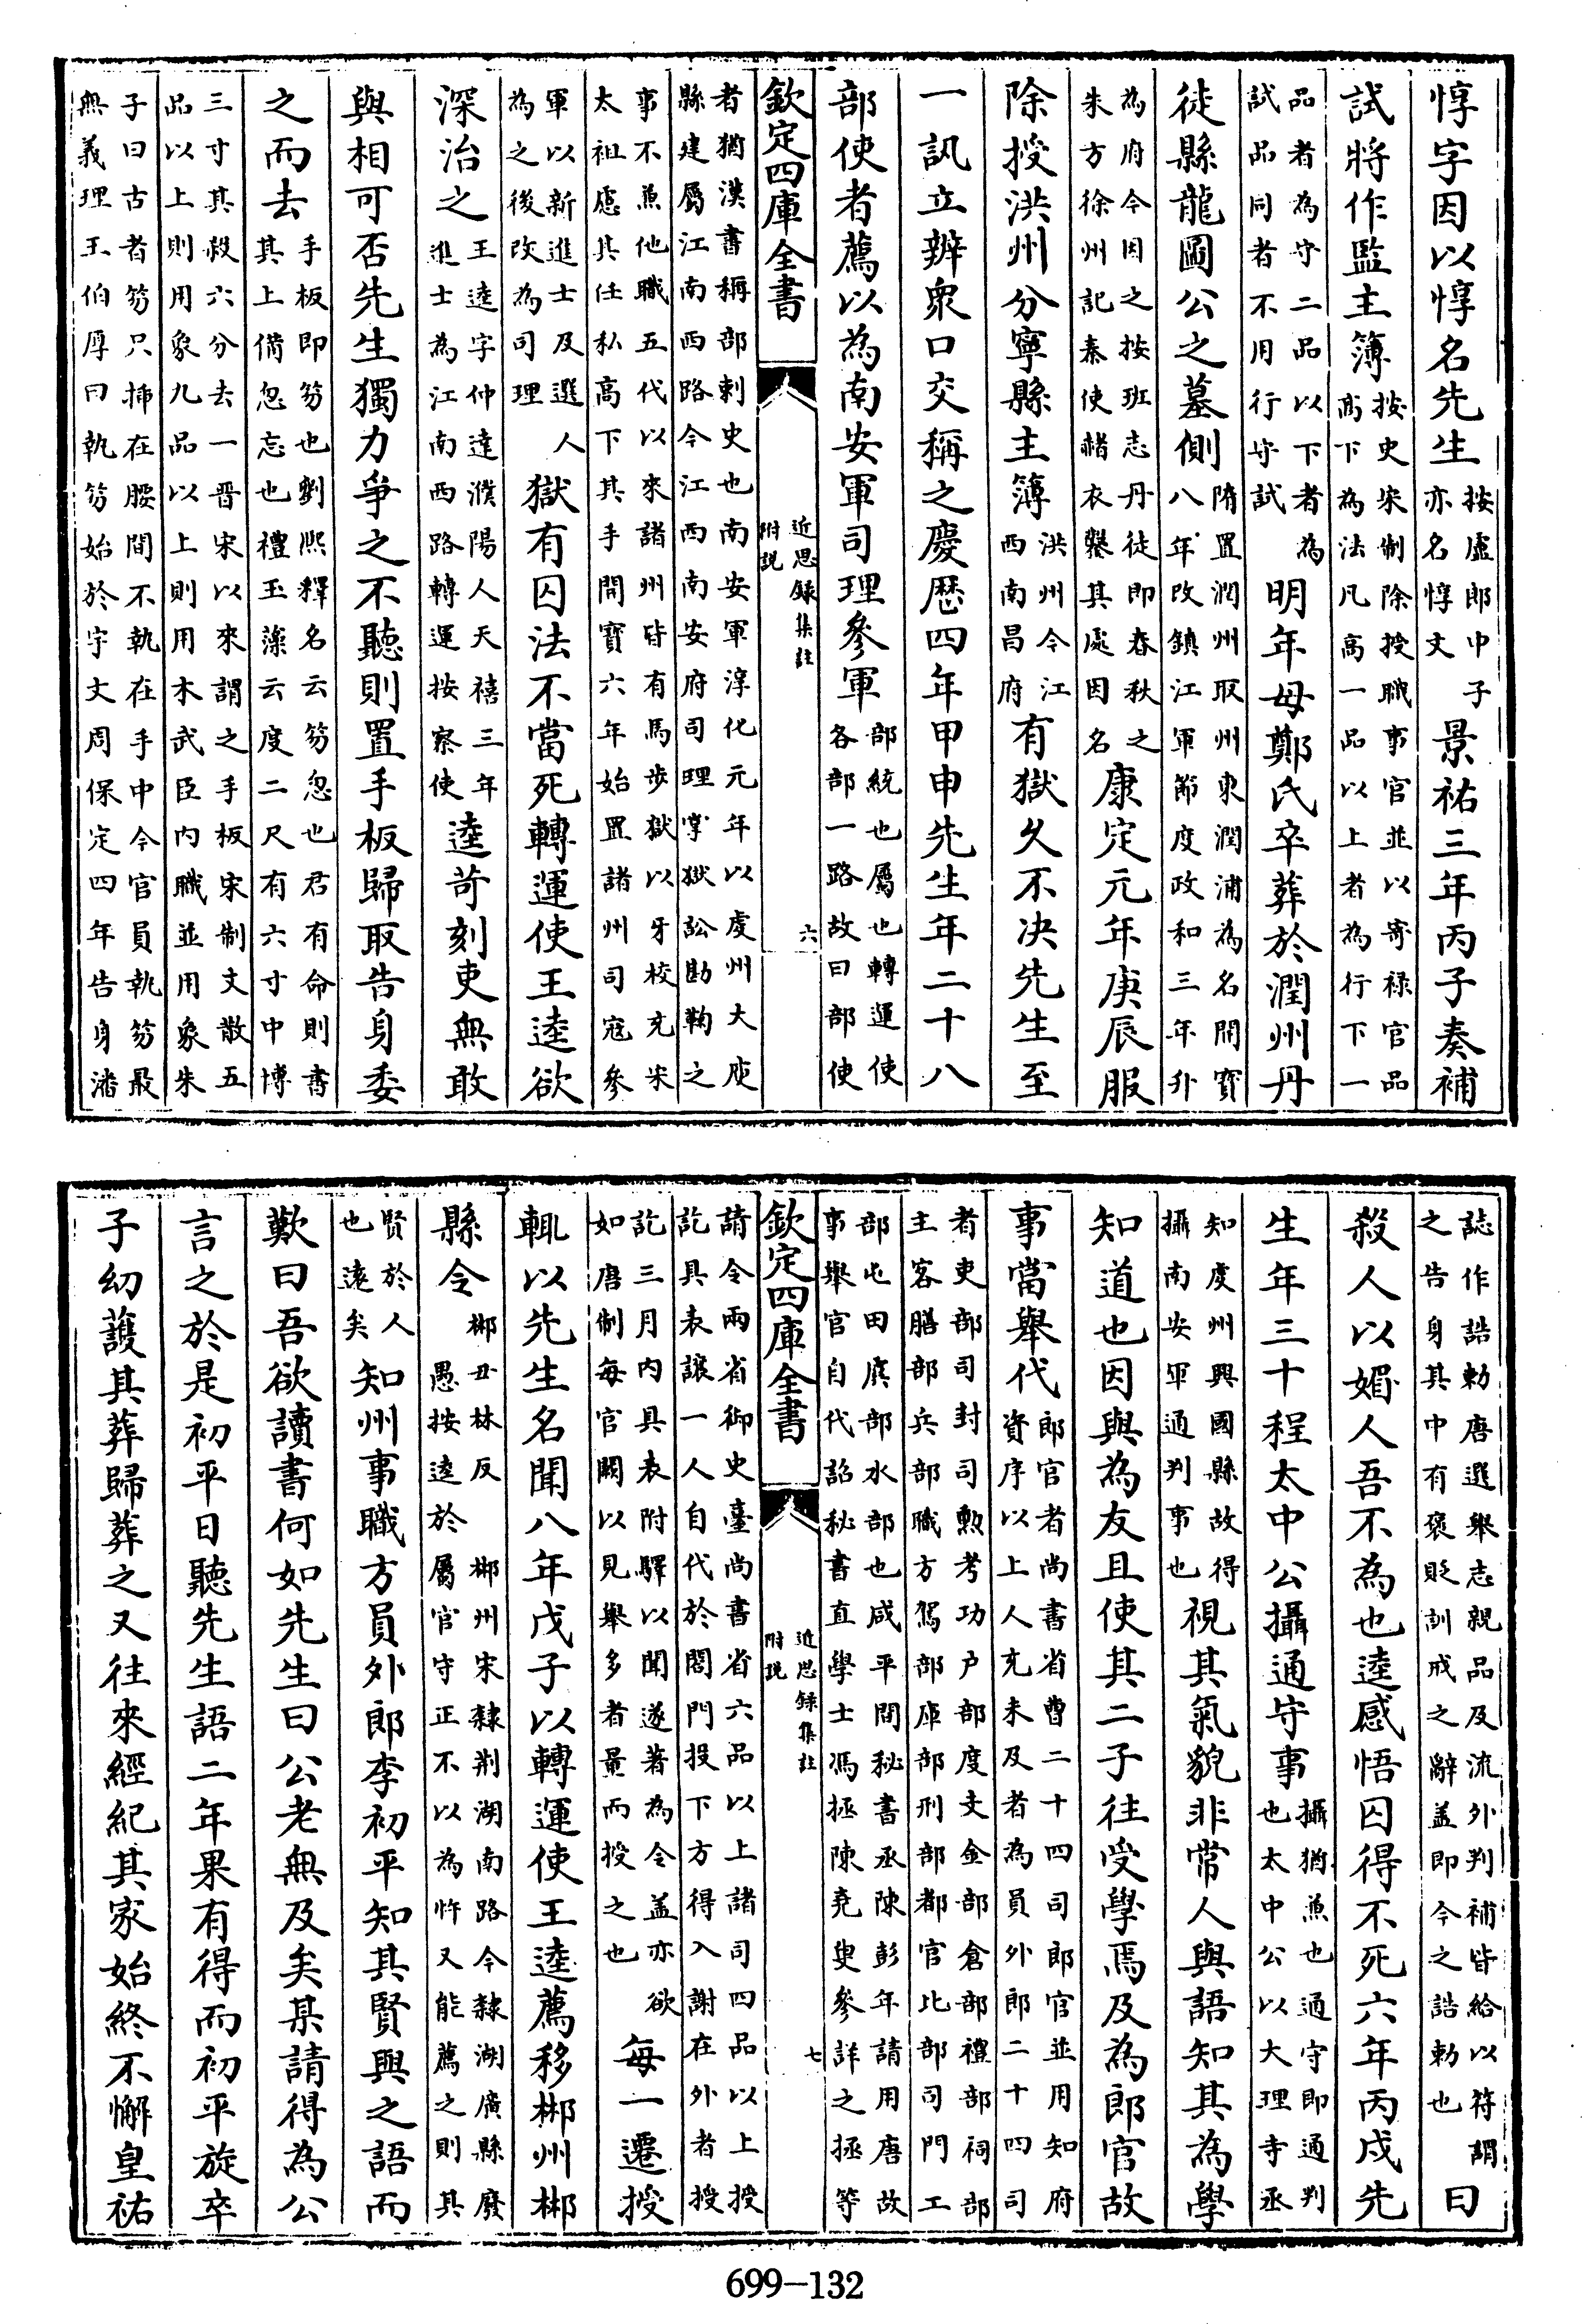 惇字因以惇名先生按盧郎中子亦名惇文景祐三年丙子奏補
試將作監主簿按史宋制除授職事官並以寄禄官品高下為法凡高一品以上者為行下一
品者為守二品以下者為試品同者不用行守試明年母鄭氏卒葬於潤州丹
徒縣龍圖公之墓側隋置潤州取州東潤浦為名開寶八年改鎮江軍節度政和三年升
為府今因之按班志丹徒即春秋之朱方徐州記秦使赭衣鑿其處因名康定元年庚辰服
除授洪州分寧縣主簿洪州今江西南昌府有獄久不決先生至
一訊立辨衆口交稱之慶歴四年甲申先生年二十八
部使者薦以為南安軍司理參軍部統也屬也轉運使各部一路故曰部使
欽定四庫全書 近思録集註 附説 六
者猶漢書稱部刺史也南安軍淳化元年以虔州大庾縣建屬江南西路今江西南安府司理掌獄訟勘鞫之
事不兼他職五代以來諸州皆有馬歩獄以牙校充宋太祖慮其任私高下其手開寶六年始置諸州司寇參
軍以新進士及選人為之後改為司理獄有囚法不當死轉運使王逵欲
深治之王逵字仲達濮陽人天禧三年進士為江南西路轉運按察使逵苛刻吏無敢
與相可否先生獨力爭之不聽則置手板歸取告身委
之而去手板即笏也劉熙釋名云笏忽也君有命則書其上備忽忘也禮玉藻云度二尺有六寸中博
三寸其殺六分去一晋宋以來謂之手板宋制文散五品以上則用象九品以上則用木武臣内職並用象朱
子曰古者笏只揷在腰間不執在手中今官員執笏最無義理王伯厚曰執笏始於宇文周保定四年告身潘
誌作誥勅唐選舉志親品及流外判補皆給以符謂之告身其中有褒貶訓戒之辭盖即今之誥勅也曰
殺人以媚人吾不為也逵感悟囚得不死六年丙戌先
生年三十程太中公攝通守事攝猶兼也通守即通判也太中公以大理寺丞
知虔州興國縣故得攝南安軍通判事也視其氣貌非常人與語知其為學
知道也因與為友且使其二子往受學焉及為郎官故
事當舉代郎官者尚書省曹二十四司郎官並用知府資序以上人充未及者為員外郎二十四司
者吏部司封司勲考功户部度支金部倉部禮部祠部主客膳部兵部職方駕部庫部刑部都官比部司門工
部屯田虞部水部也咸平間秘書丞陳彭年請用唐故事舉官自代詔秘書直學士馮拯陳堯叟參詳之拯等
請令兩省御史臺尚書省六品以上諸司四品以上授訖具表讓一人自代於閤門投下方得入謝在外者授
訖三月内具表附驛以聞遂著為令盖亦欲如唐制每官闕以見舉多者量而授之也每一遷授
輒以先生名聞八年戊子以轉運使王逵薦移郴州郴
縣令郴丑林反郴州宋隸荆湖南路今隸湖廣縣廢愚按逵於屬官守正不以為忤又能薦之則其
賢於人也遠矣知州事職方員外郎李初平知其賢與之語而
歎曰吾欲讀書何如先生曰公老無及矣某請得為公
言之於是初平日聽先生語二年果有得而初平旋卒
子幼護其葬歸葬之又往來經紀其家始終不懈皇祐
699-132